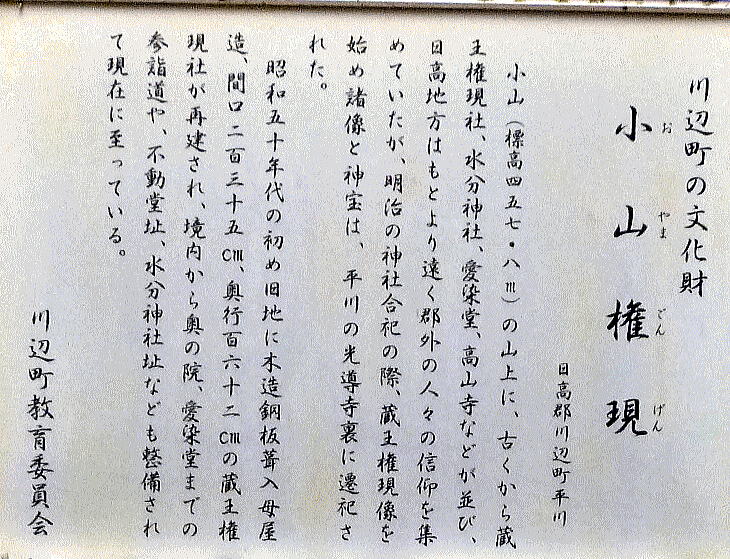 川辺町の文化財
小山権現
お やま ごん げん
日高郡川辺町平川
小山（標高四五七・八m）の山上に、古くから蔵
王権現社、水分神社、愛染堂、高山寺などが並び、
日高地方はもとより遠く郡外の人々の信仰を集
めていたが、明治の神社合祀の際、蔵王権現像を
始め諸像と神宝は、平川の光導寺裏に遷祀さ
れた。
昭和五十年代の初め旧地に木造銅板葺入母屋
造、間口二百三十五cm、奥行百六十二cmの蔵王権
現社が再建され、境内から奥の院、愛染堂までの
参詣道や、不動堂址、水分神社址なども整備され
て現在に至っている。
川辺町教育委員会